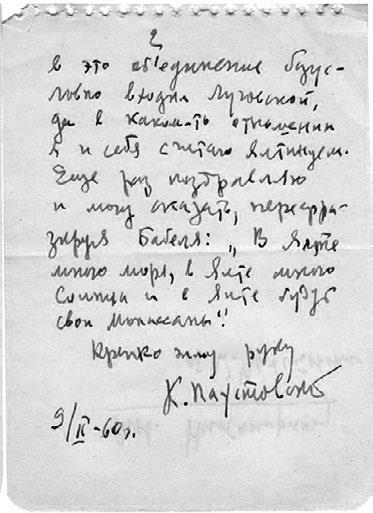 2
в это объединение безус-
ловно входил Луговской,
да в каком-то отношении
я и себя считаю ялтинцем.
Еще раз поздравляю
и могу сказать, перефра-
зируя Бабеля: „В Ялте
много моря, в Ялте много
солнца и в Ялте будут
свои Мопассаны".
Крепко жму руку
К. Паустовский
9/II-60 г.